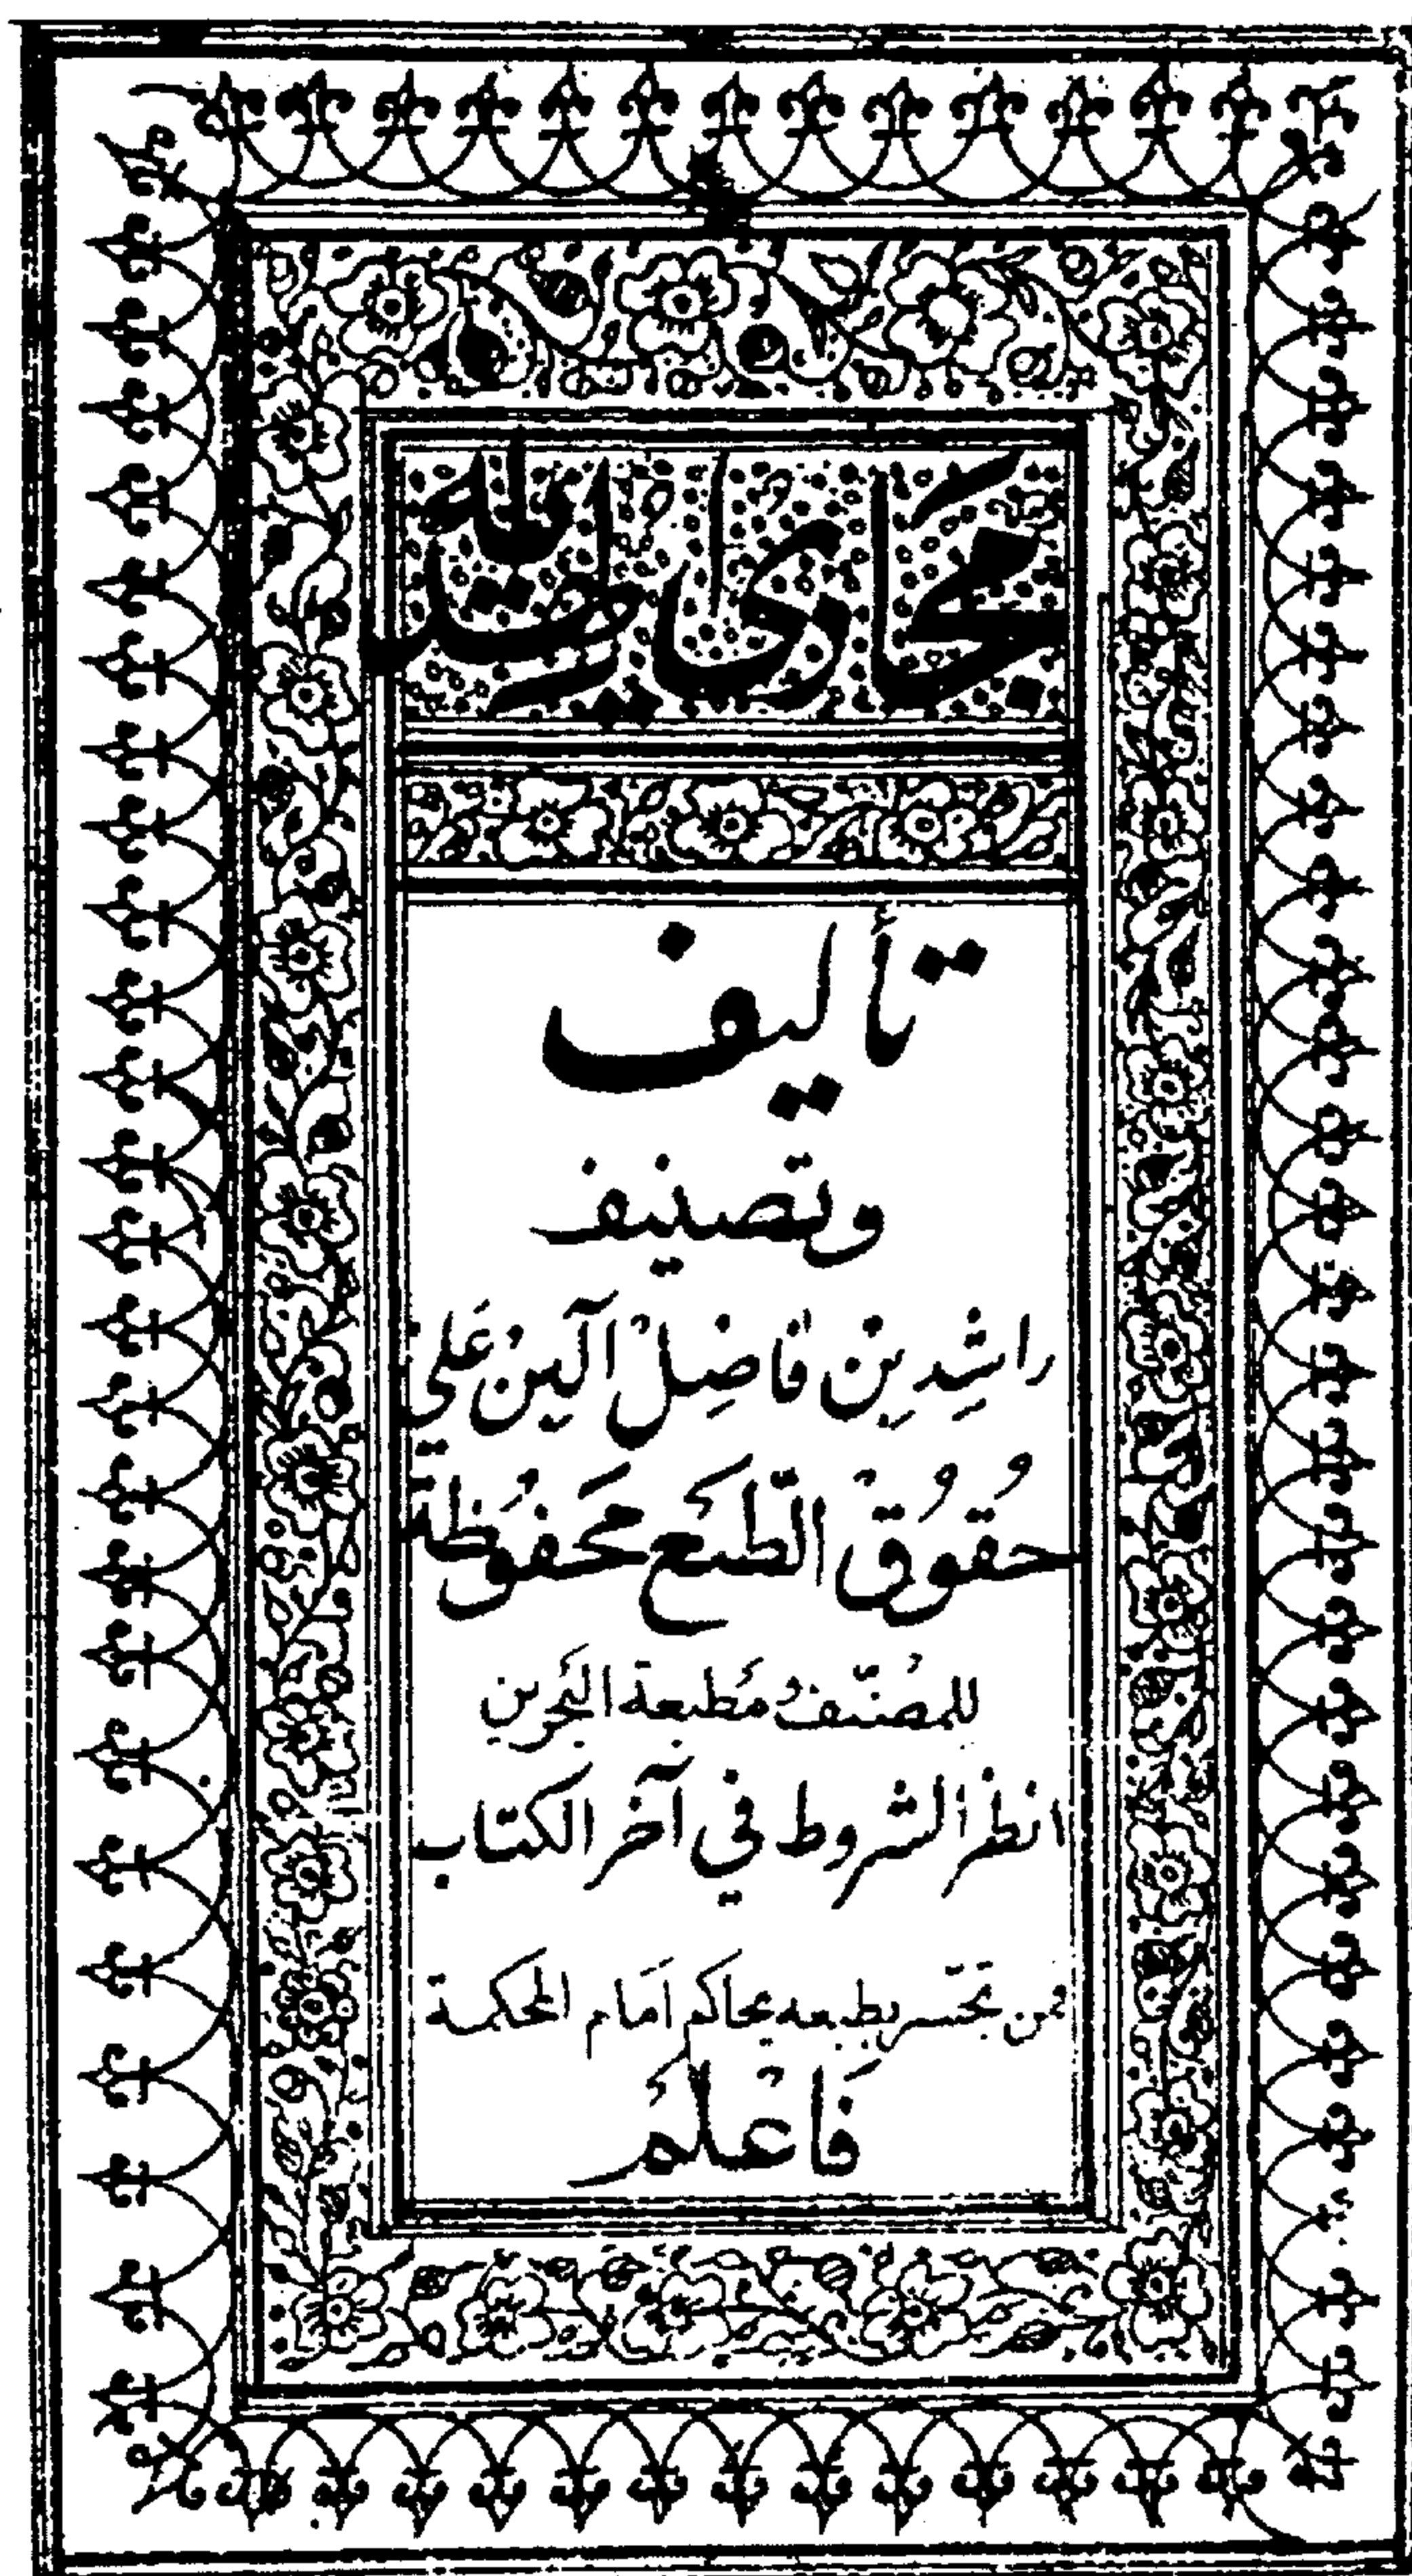 مجاري الهداية
تأليف
وتصنيف
رَاشِد بِن فَاضِل آلبِن عَلي
حُقُوقُ الطَّبَع مَحفُوظة
للمصُنّف وُ مَطبعة البَحرين
انظر الشروط في آخر الكتاب
فمن تَجَسّر بطبعه يحاكم اَمَام المحكمة
فَاعْلَمَ